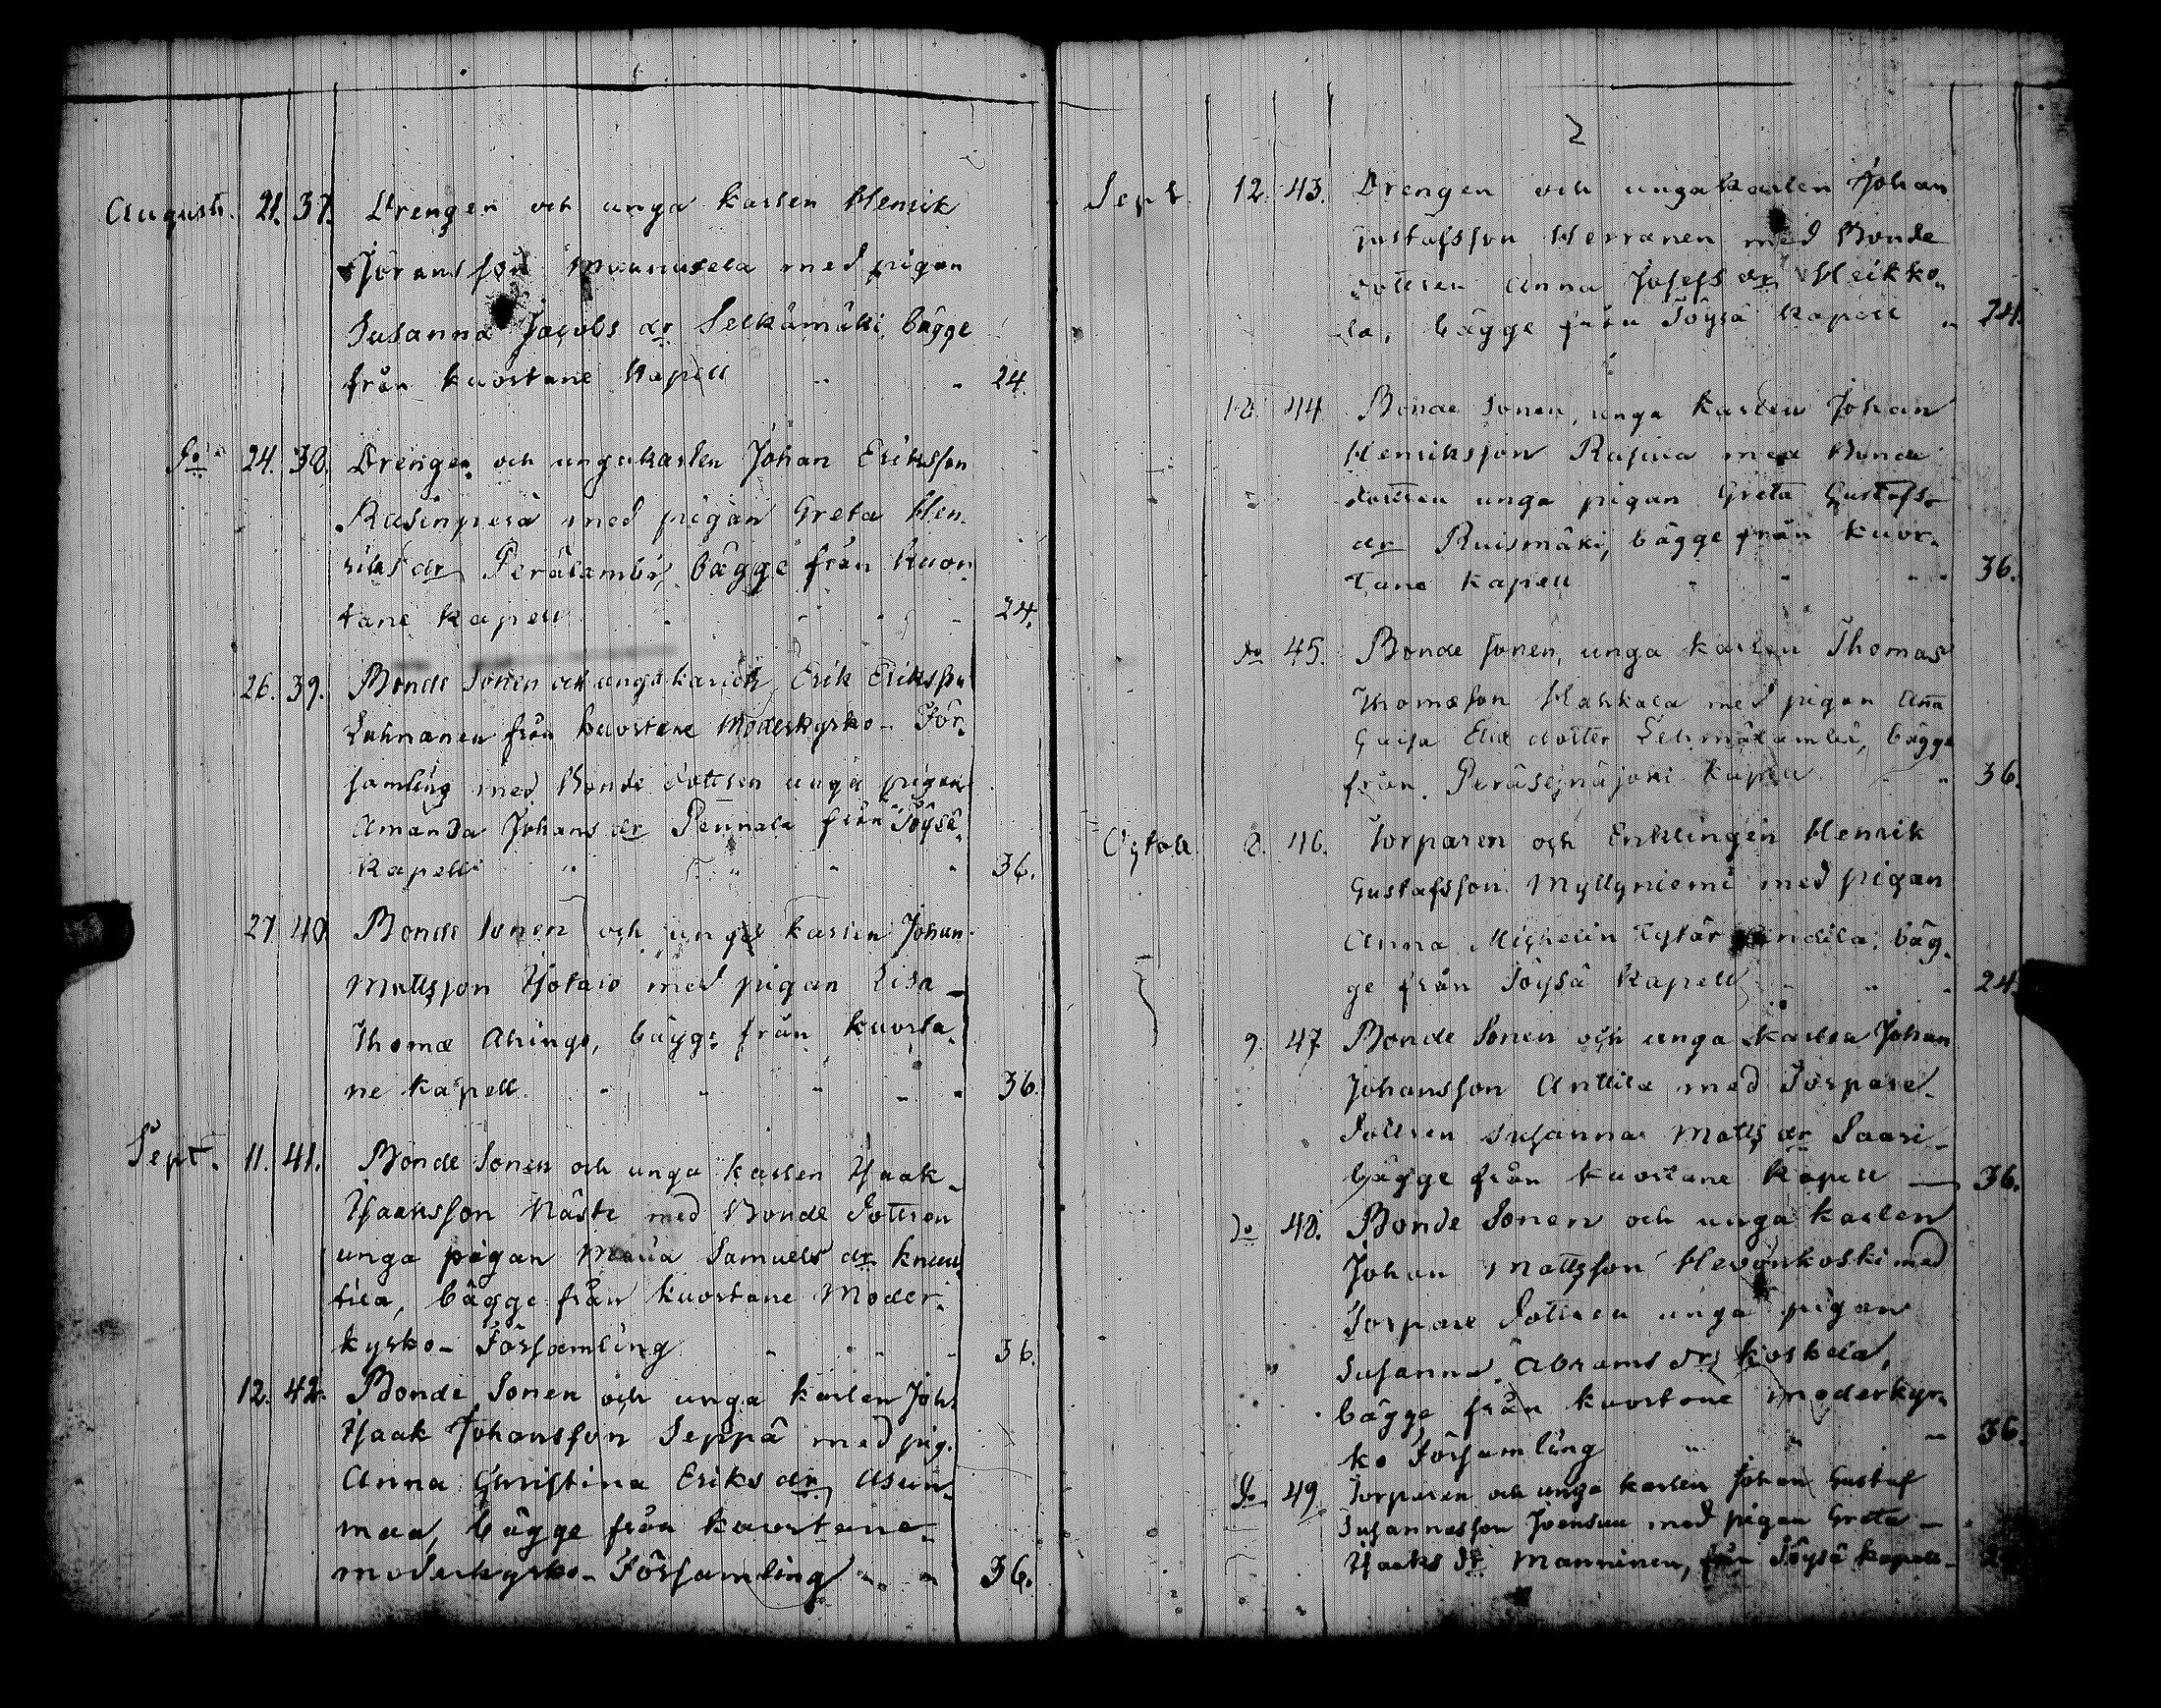 August. 21. 37. Drengen och unga karlen Henrik
Jöransson Mannusela med pigan
Susanna Jacobs dr Selkämäki, bägge
från Kuortane Kapell 24.
Do 24. 38. Drengen och ungakarlen Johan Eriksson
Rasinperä med pigan Greta Hen-
riks dr Perälambi, bägge från Kuor-
tane Kapell 24.
26. 39. Bonde Sonen och unga karlen Erik Eriksson
Luhnanen från Kuortane Moderkyrko-För-
samling med Bonde dottren unga pigan
Amanda Johans dr Pennala från Töysä
Kapell 36.
27. 40. Bonde Sonen och unga karlen Johan
Mattsson med pigan Lisa
Thomæ Ahinge, bägge från Kuorta-
ne Kapell 36.
Sept. 11. 41. Bonde Sonen och unga karlen Isaak
Isaaksson Näste med Bonde dottren
unga pigan Maria Samuels dr Knuu-
tila, bägge från Kuortane Moder-
kyrko-Församling 36.
12. 42. Bonde Sonen och unga karlen Joh.
Isaak Johansson Seppä med pig.
Anna Christina Eriks dr Asun-
maa, bägge från Kuortane
moderkyrko-Församling 36.
2
Sept 12. 43. Drengen och ungakarlen Johan
Gustafsson Herranen med Bonde
dottren Anna Josefs dr Heikko-
la, bägge från Töysä Kapell 24.
18. 44 Bonde Sonen, unga karlen Johan
Henriksson med Bonde
dottren unga pigan Greta Gustafs-
dr Ruismäki, bägge från Kuor-
tane Kapell 36.
do 45. Bonde Sonen, unga karlen Thomas
Thomæson Hahkala med pigan Anna
Caisa Eliæ dotter Lehmälambi, bägge
från Peräseinäjoki Kapell 36.
Octob. 2. 46. Torparen och Enklingen Henrik
Gustafsson Myllyniemi med pigan
Anna Michelin tytär bäg-
ge från Töysä Kapell 24.
9. 47 Bonde Sonen och unga karlen Johan
Johansson Anttila med Torpare
dottren Susanna Matts dr Saari
bägge från Kuortane Kapell 36.
Do 48. Bonde Sonen och unga karlen
Johan Mattsson Hevonkoski med
Torpare dottren unga pigan
Susanna Abrams dr Koskela,
bägge från Kuortane moderkyr-
ko Församling 36.
Do 49. Torparen och unga karlen Johan Gustaf
Johannesson Joensuu med pigan Greta
Isaaks dr Manninen, från Töysä Kapell